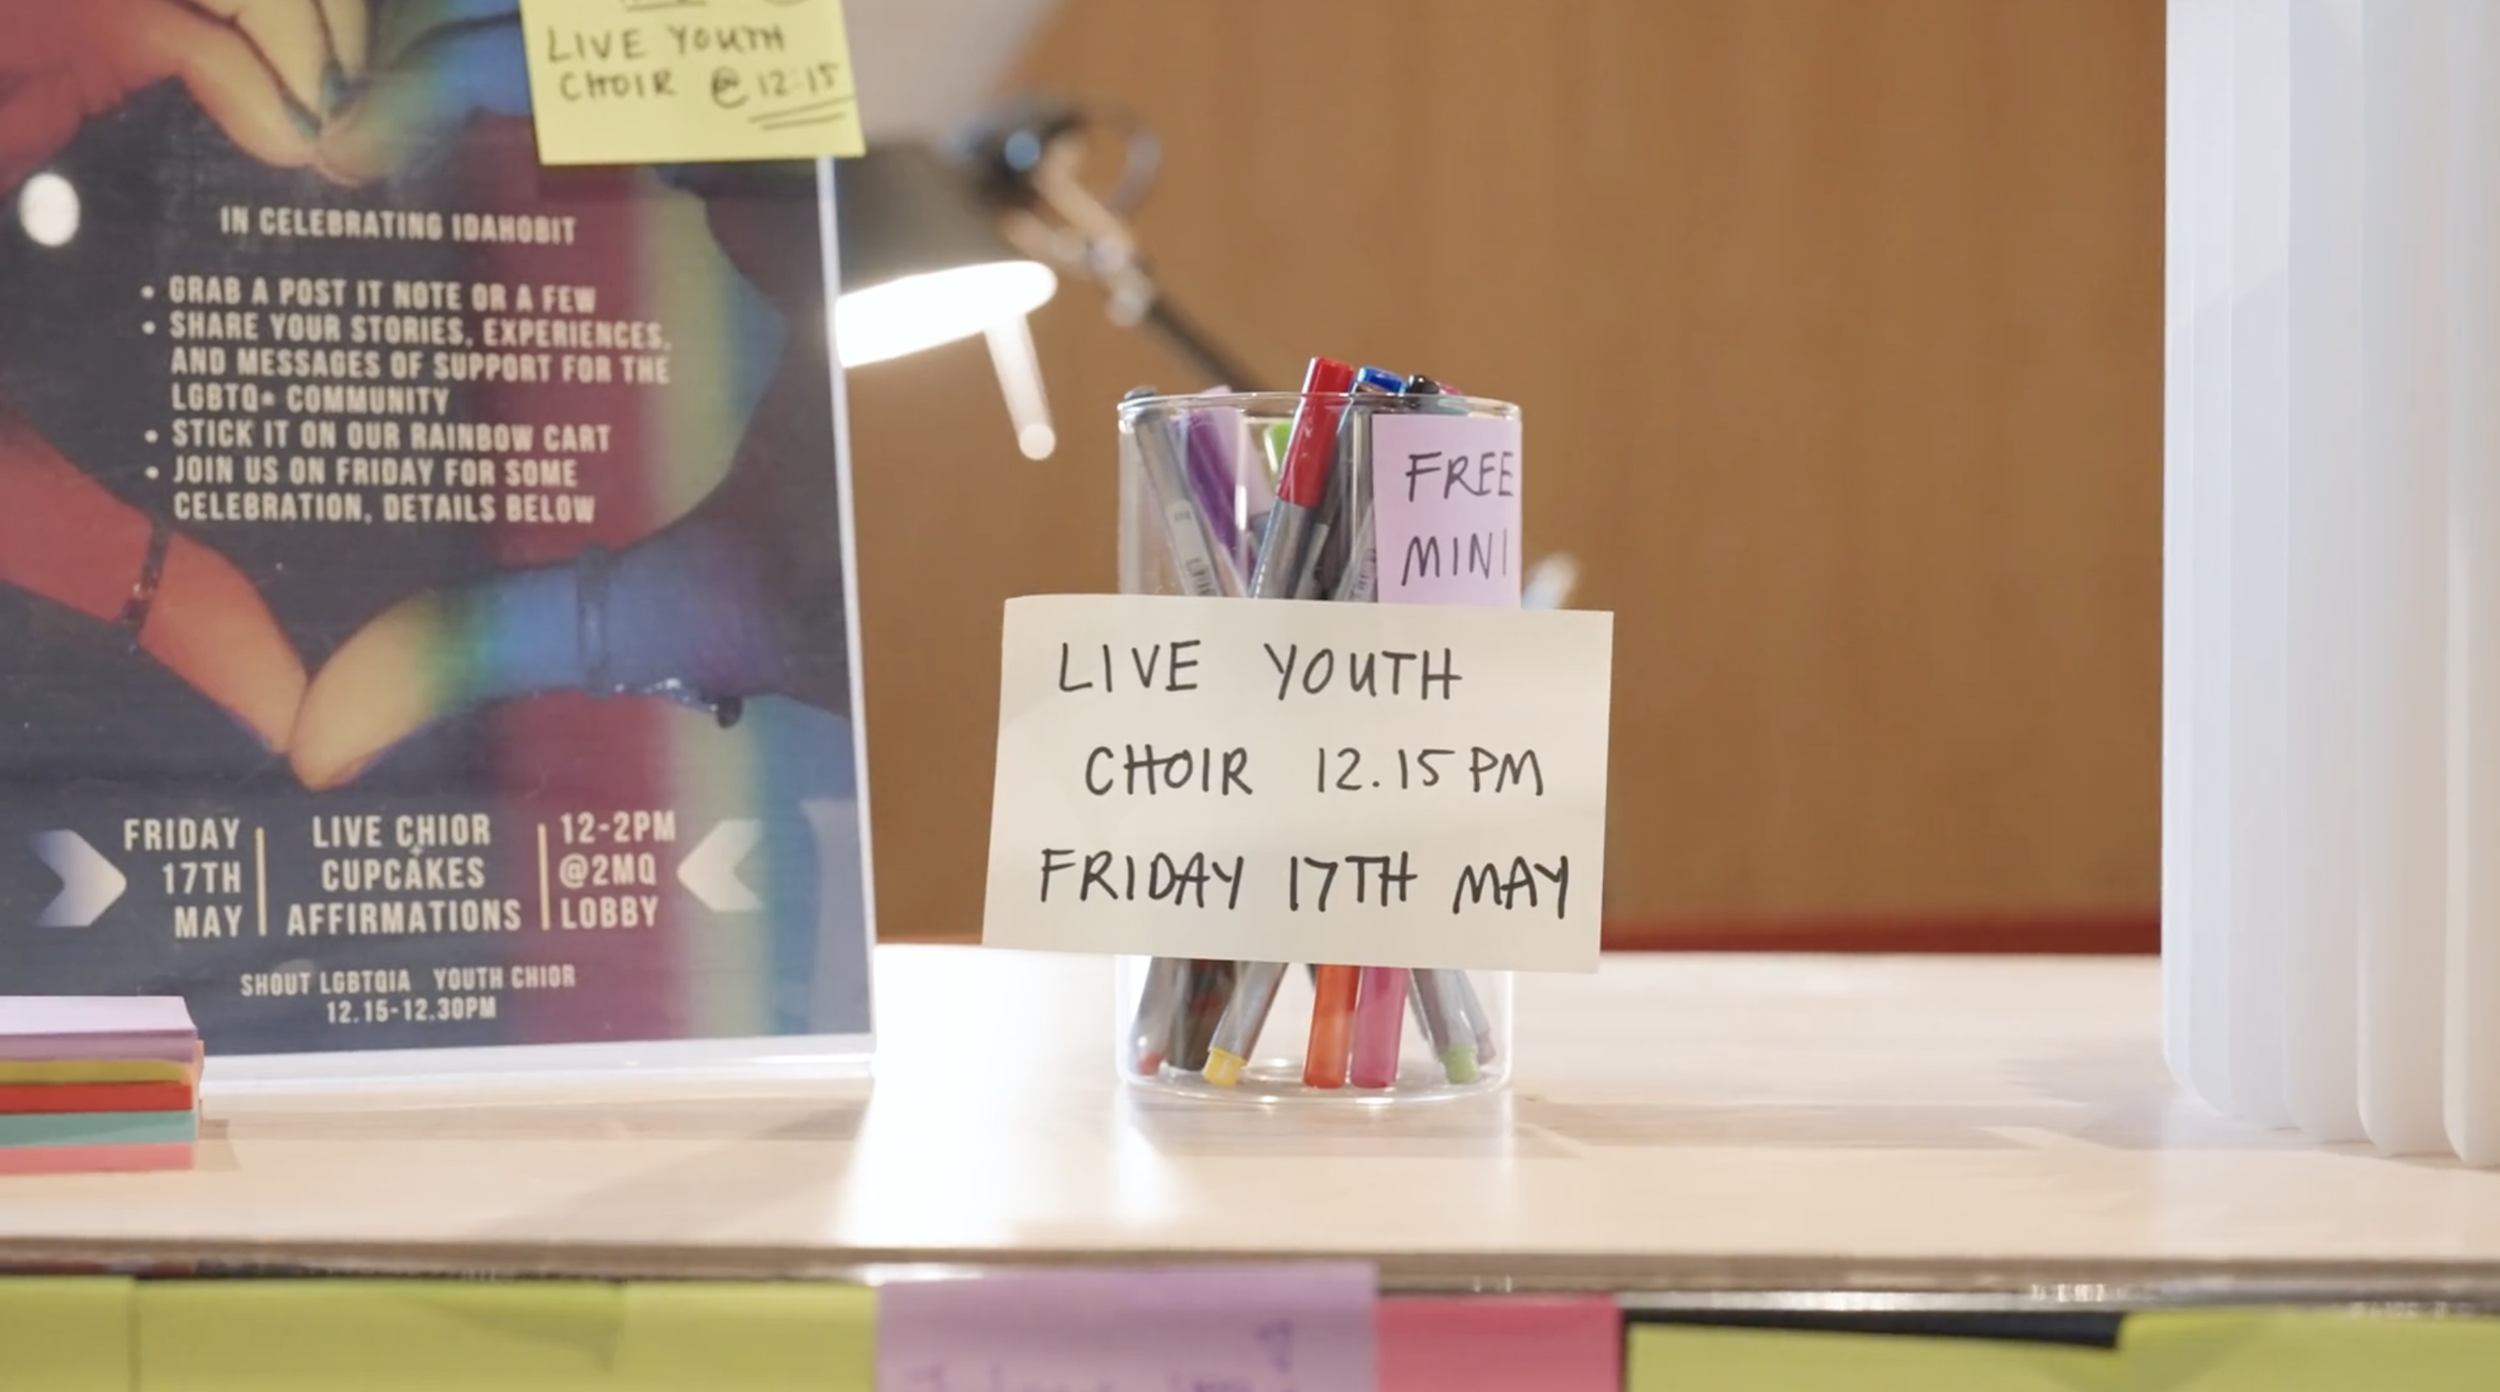 LIVE YOUTH
CHOIR @ 12:15
IN CELEBRATING IDAHOBIT
• GRAB A POST IT NOTE OR A FEW
• SHARE YOUR STORIES, EXPERIENCES,
AND MESSAGES OF SUPPORT FOR THE
LGBTQ+ COMMUNITY
• STICK IT ON OUR RAINBOW CART
• JOIN US ON FRIDAY FOR SOME
CELEBRATION, DETAILS BELOW
FRIDAY
17TH
MAY
LIVE CHIOR
+
CUPCAKES
AFFIRMATIONS
12-2PM
@2MQ
LOBBY
SHOUT LGBTQIA YOUTH CHIOR
12.15-12.30PM
FREE
MINI
LIVE YOUTH
CHOIR 12.15 PM
FRIDAY 17TH MAY